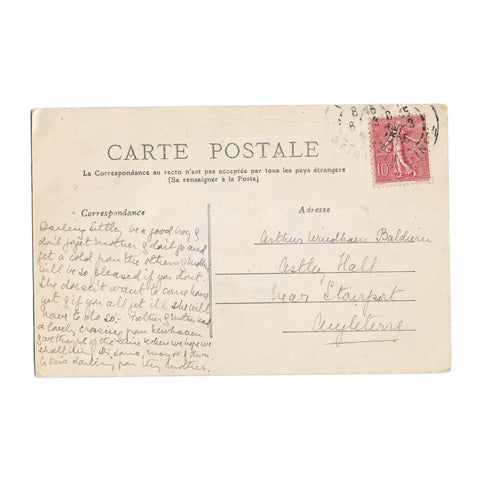 CARTE POSTALE
La Correspondance au recto n'est pas acceptée par tous les pays étrangers
(Se renseigner à la Poste)
Correspondance
Adresse
Darling little be a good boy &
don't forget Mother & don't go and
get a cold from the others & Mother
will be so pleased if you don't.
She doesn't want to come home
yet & if you all get ill she will
have to do so. Father & Mother had
a lovely crossing from Newhaven
& we the when we hope we
shall Di, Lorna, Margot &
& kiss darling from thy Mother.
Arthur Windham Baldwin
Astley Hall
near Stourport
Angleterre
10